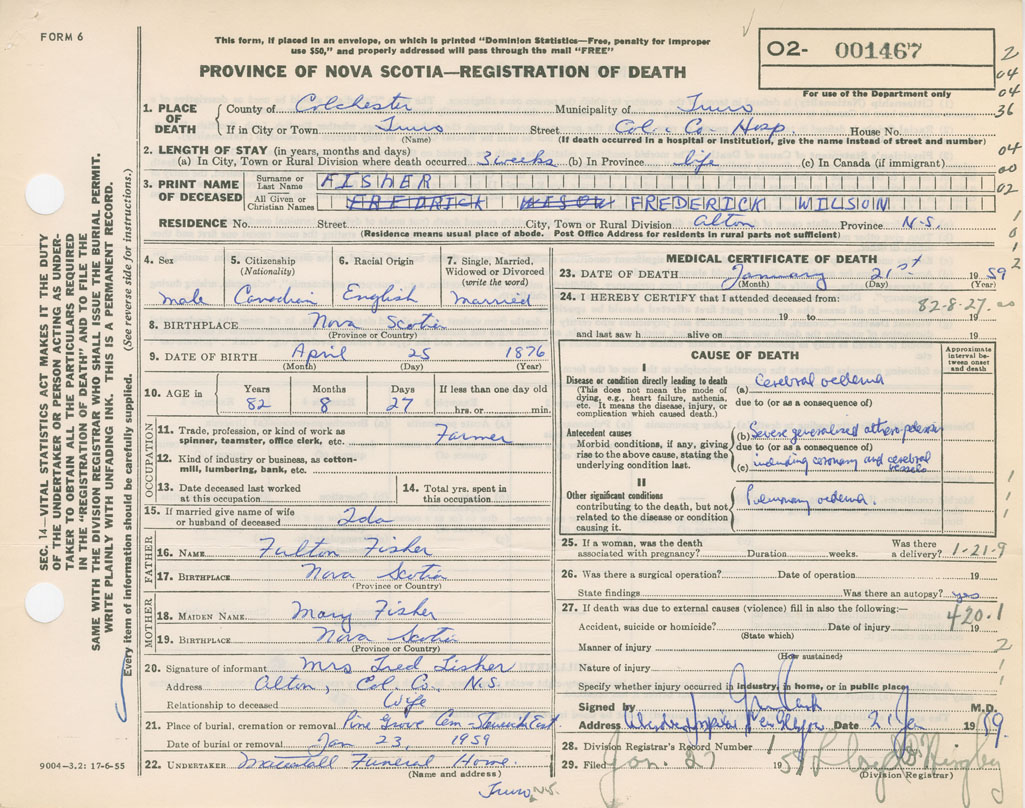 FORM 6
This form, if placed in an envelope, on which is printed "Dominion Statistics—Free, penalty for improper
use $50," and properly addressed will pass through the mail "FREE"
O2- 001467
For use of the Department only
PROVINCE OF NOVA SCOTIA—REGISTRATION OF DEATH
2
04
04
36
04
00
02
1. PLACE OF DEATH
County of Colchester Municipality of Truro
If in City or Town Truro Street Col. Co. Hosp. House No.
(Name) (If death occurred in a hospital or institution, give the name instead of street and number)
2. LENGTH OF STAY (in years, months and days)
(a) In City, Town or Rural Division where death occurred 3 weeks (b) In Province life (c) In Canada (if immigrant)
3. PRINT NAME OF DECEASED
Surname or Last Name FISHER
All Given or Christian Names FREDRICK FREDERICK WILSON
RESIDENCE No. Street City, Town or Rural Division Alton Province N-S.
(Residence means usual place of abode. Post Office Address for residents in rural parts not sufficient)
4. Sex male
5. Citizenship (Nationality) Canadian
6. Racial Origin English
7. Single, Married, Widowed or Divorced (write the word) Married
8. BIRTHPLACE Nova Scotia
(Province or Country)
9. DATE OF BIRTH April 25 1876
(Month) (Day) (Year)
10. AGE in Years 82 Months 8 Days 27 If less than one day old hrs. or min.
OCCUPATION
11. Trade, profession, or kind of work as
spinner, teamster, office clerk, etc. Farmer
12. Kind of industry or business, as cotton-
mill, lumbering, bank, etc.
13. Date deceased last worked
at this occupation
14. Total yrs. spent in
this occupation
15. If married give name of wife
or husband of deceased Ida
FATHER
16. NAME Fulton Fisher
17. BIRTHPLACE Nova Scotia
(Province or Country)
MOTHER
18. MAIDEN NAME Mary Fisher
19. BIRTHPLACE Nova Scotia
(Province or Country)
20. Signature of informant Mrs Fred Fisher
Address Alton, Col. Co. N.S
Relationship to deceased Wife
21. Place of burial, cremation or removal Pine Grove Cem-
Date of burial or removal Jan 23, 1959
22. UNDERTAKER Funeral Home
(Name and address)
Truro N.S.
MEDICAL CERTIFICATE OF DEATH
23. DATE OF DEATH January 21st 1959
(Month) (Day) (Year)
24. I HEREBY CERTIFY that I attended deceased from: 82-8-27.
19 to 19
and last saw h alive on 19
CAUSE OF DEATH
Approximate interval between onset and death
I
Disease or condition directly leading to death
(This does not mean the mode of
dying, e.g., heart failure, asthenia,
etc. It means the disease, injury, or
complication which caused death.)
(a) Cerebral oedema
due to (or as a consequence of)
Antecedent causes
Morbid conditions, if any, giving
rise to the above cause, stating the
underlying condition last.
(b) Severe generalized
due to (or as a consequence of)
(c) including coronary and cerebral
vessels
II
Other significant conditions
contributing to the death, but not
related to the disease or condition
causing it.
Pulmonary oedema.
25. If a woman, was the death
associated with pregnancy? Duration weeks. Was there
a delivery? 1-21-9
26. Was there a surgical operation? Date of operation 19
State findings Was there an autopsy? yes
27. If death was due to external causes (violence) fill in also the following:—
420.1
Accident, suicide or homicide? Date of injury 19
(State which)
Manner of injury
(How sustained)
Nature of injury
Specify whether injury occurred in industry, in home, or in public place
Signed by M.D.
Address Date 21 Jan 1959.
28. Division Registrar's Record Number 1
29. Filed Jan. 27 1959
(Division Registrar)
SEC. 14—VITAL STATISTICS ACT MAKES IT THE DUTY
OF THE UNDERTAKER OR PERSON ACTING AS UNDER-
TAKER TO OBTAIN ALL THE PARTICULARS REQUIRED
IN THE "REGISTRATION OF DEATH" AND TO FILE THE
SAME WITH THE DIVISION REGISTRAR WHO SHALL ISSUE THE BURIAL PERMIT.
WRITE PLAINLY WITH UNFADING INK. THIS IS A PERMANENT RECORD.
Every item of information should be carefully supplied. (See reverse side for instructions.)
9004-3.2: 17-6-55